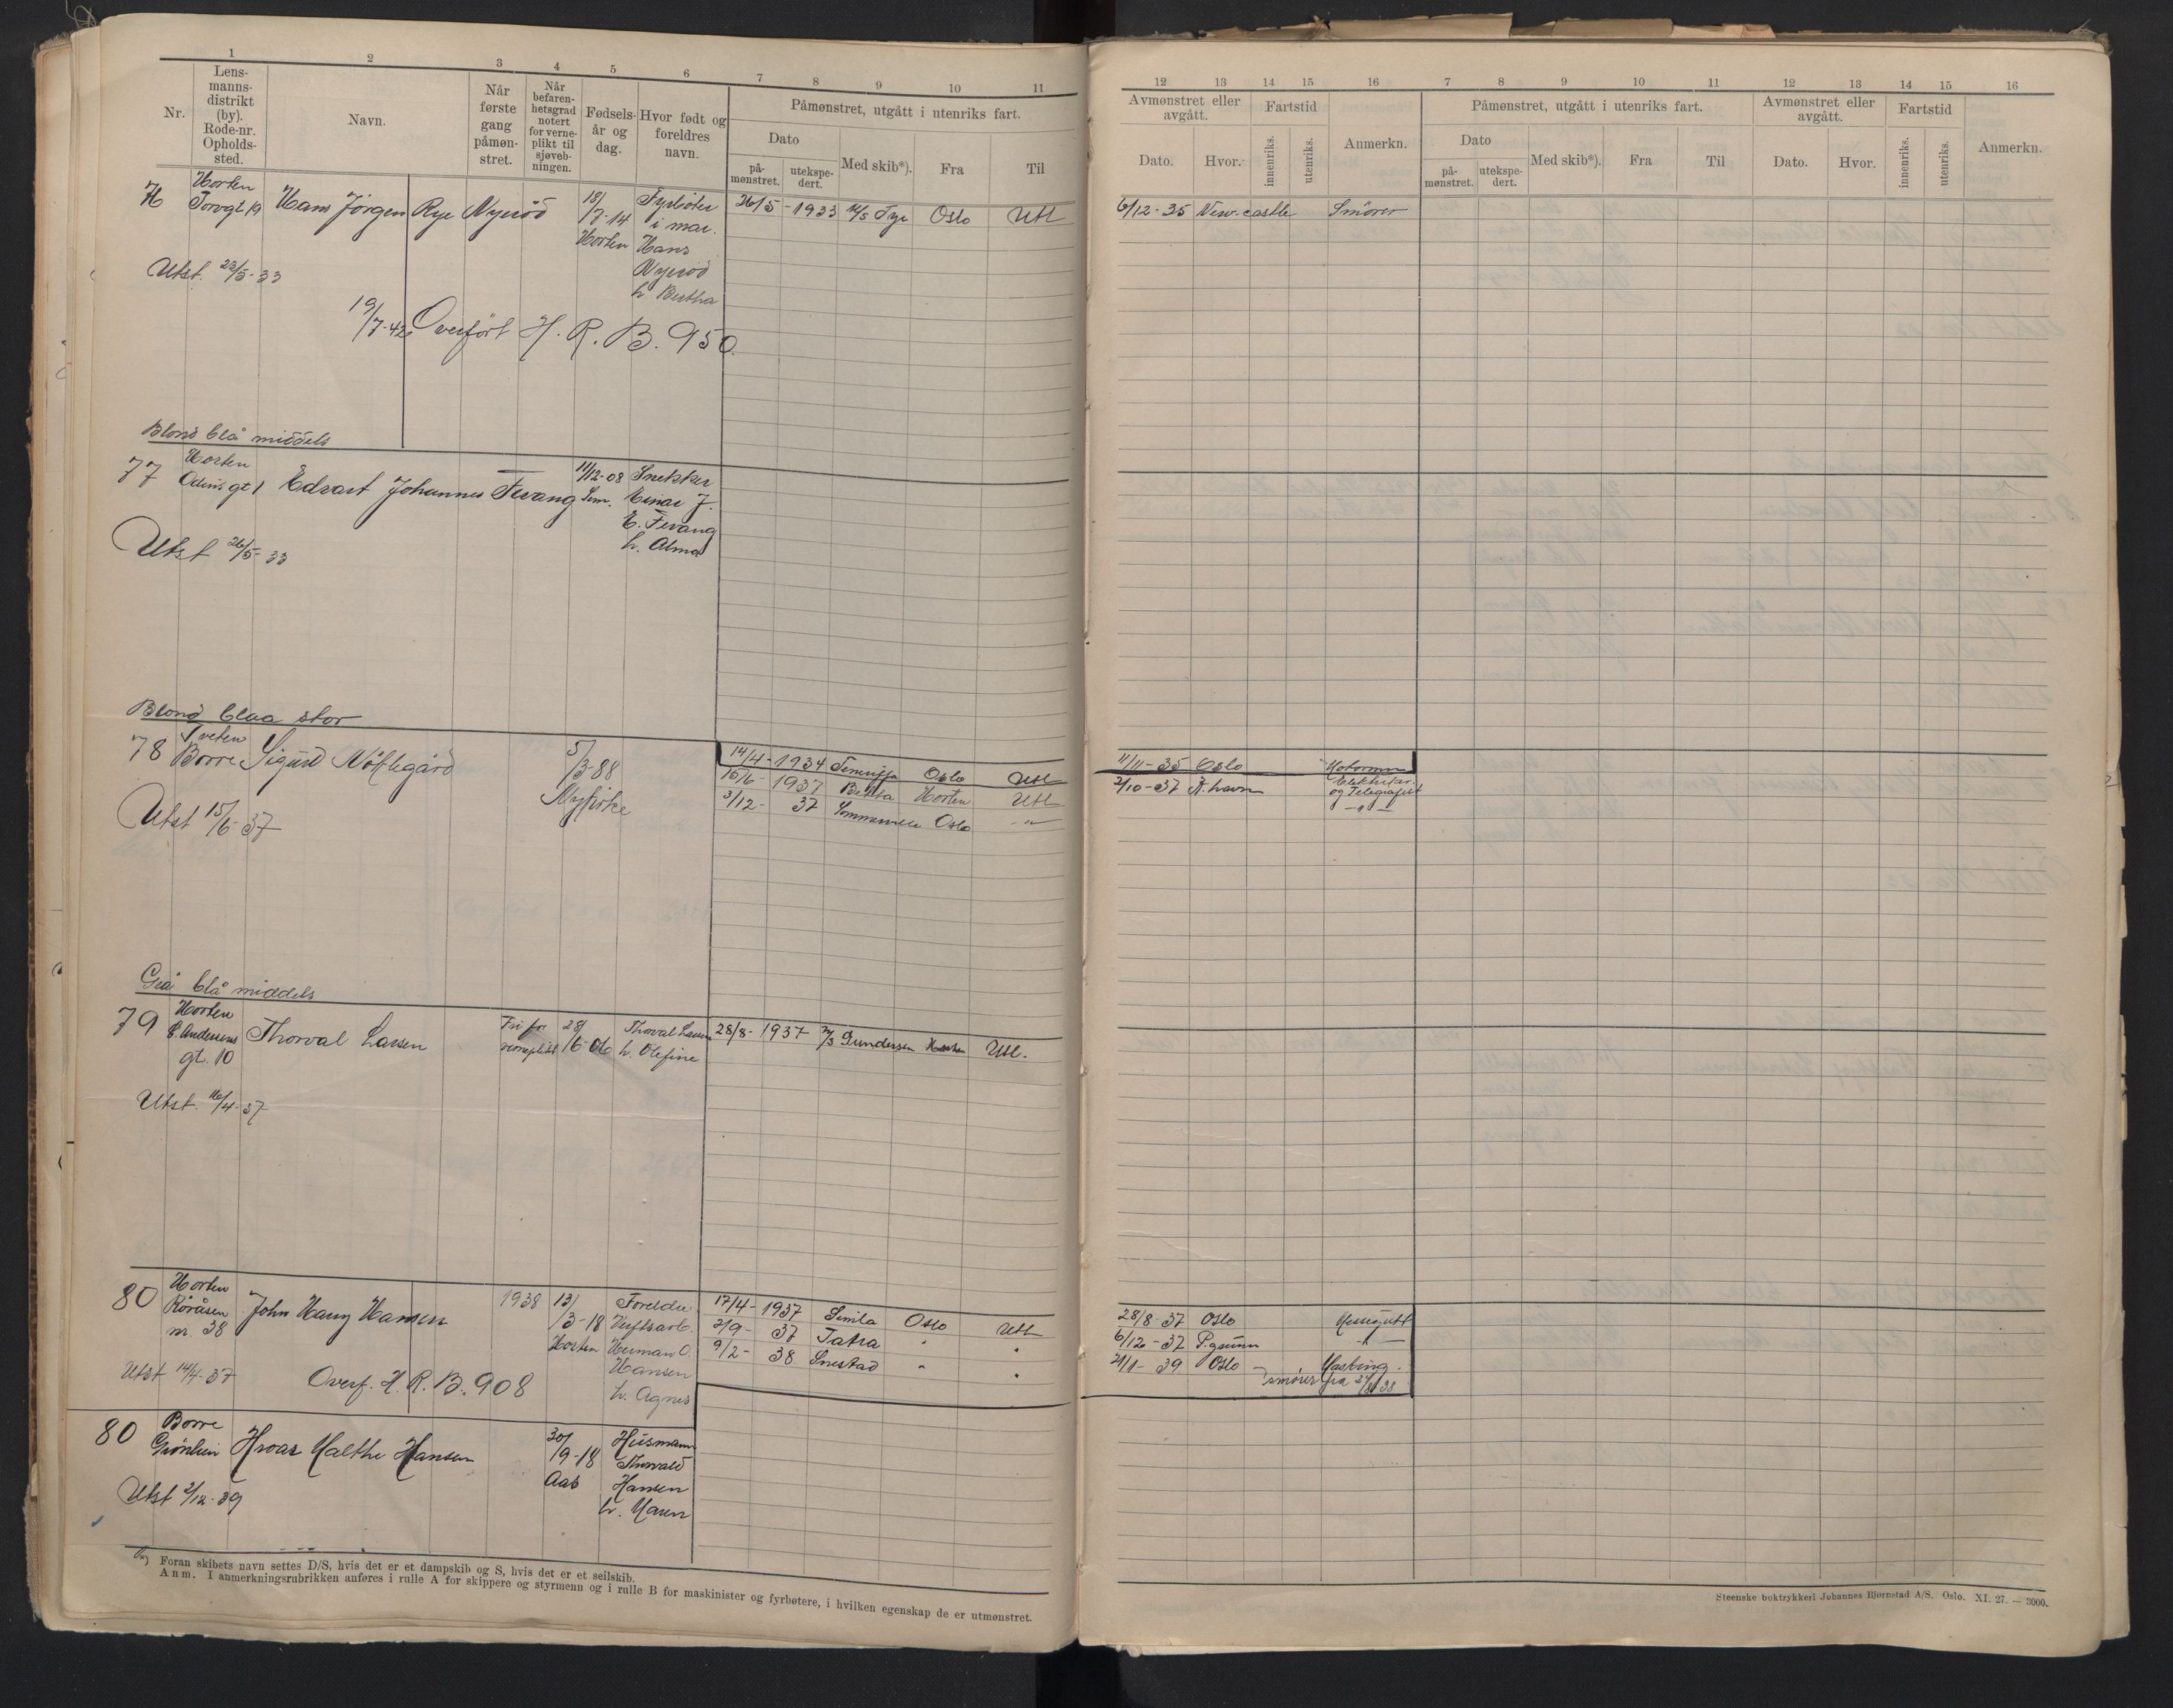 1 2 3 4 5 6 7 8 9 10 11
Nr.
Lens-
manns-
distrikt
(by).
Rode-nr.
Opholds-
sted.
Navn.
Når
første
gang
påmøn-
stret.
Når
befaren-
hetsgrad
notert
for verne-
plikt til
sjøveb-
ningen.
Fødsels-
år og
dag.
Hvor født og
foreldres
navn.
Påmønstret, utgått i utenriks fart.
Dato
på-
mønstret.
utekspe-
dert.
Med skib*).
Fra
Til
76 Horten
Torvgt 19 Hans Jörgen Rye Nyeröd
18/
7-14
Horten
Fyrböter
i mar.
Hans
Nyeröd
h. Bertha
26/5 - 1933 M/S Tyr Oslo Utl
Utst. 23/5-33
19/
7-42 Overfört H. R. B. 950.
Blond blå middels
77 Horten
Odins gt 1 Edvart Johannes Fevang
11/12-08
Sem.
Snekker
Einar J.
E. Fevang
h. Alma
Utst 26/5-33
Blond blaa stor
78 Sveten
Borre Sigurd Nöklegård
5/
3-88
Nykirke
14/4 - 1934 Teneriffa Oslo Utl
15/6 - 1937 Beltta Horten Utl
3/12- 37 Sommerville Oslo -"-
Utst 15/6-37
Grå blå middels
79 Horten
C. Andersens
gt. 10 Thorval Larsen
Fri for
verneplikt
28/
6-06
Thorval Larsen
h. Olefine
28/8- 1937 M/S Gundersen Horten Utl.
Utst. 16/4-37
80 Horten
Röråsen
nr. 38 John Haug Hansen
1938
13/
3-18
Horten
Foreldre
Verftsarb.
Herman O.
Hansen
h. Agnes
17/4- 1937 Simla Oslo Utl
2/9- 37 Tatra " "
9/2- 38 Snestad " "
Utst 14/4-37 Overf. H. R. B. 908
80 Borre
Grönlien Hroar Malthe Hansen
30/
9-18
Aas
Husmann
Thorvald
Hansen
h. Maren
Utst 2/12-39
*) Foran skibets navn settes D/S, hvis det er et dampskib og S, hvis det er et seilskib.
Anm. I anmerkningsrubrikken anføres i rulle A for skippere og styrmenn og i rulle B for maskinister og fyrbøtere, i hvilken egenskap de er utmønstret.
12 13 14 15 16 7 8 9 10 11 12 13 14 15 16
Avmønstret eller
avgått.
Dato. Hvor.
Fartstid
innenriks.
utenriks.
Anmerkn.
Påmønstret, utgått i utenriks fart.
Dato
på-
mønstret.
utekspe-
dert.
Med skib*).
Fra
Til
Avmønstret eller
avgått.
Dato. Hvor.
Fartstid
innenriks.
utenriks.
Anmerkn.
6/12-35 New-castle Smörer
11/11-35 Oslo Motormn
2/10-37 K.havn Elektriker
og Telegrafist
-"-
28/8-37 Oslo Messegutt
6/12-37 P.grunn -"-
21/1-39 Oslo
smörer fra
Steenske boktrykkeri Johannes Bjørnstad A/S. Oslo. XI. 27. — 3000.